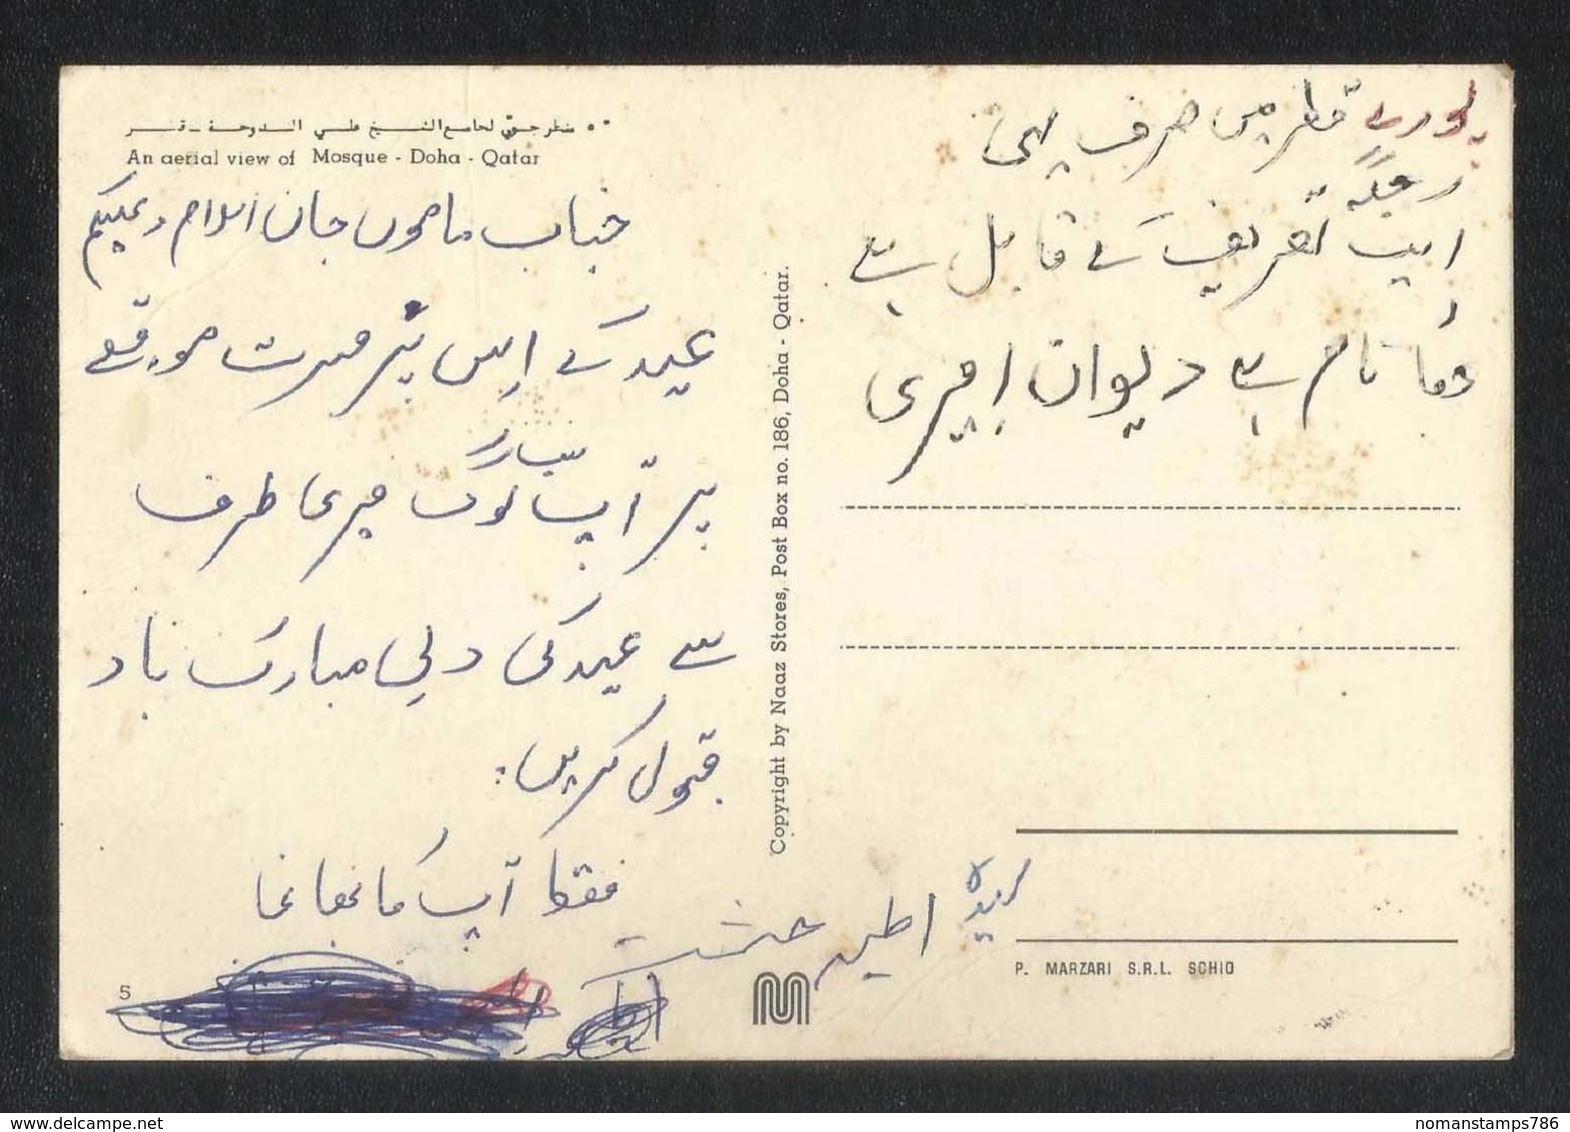 منظر جوي لجامع الشيخ علي الدوحة - قطر
An aerial view of Mosque - Doha - Qatar
جناب ماموں جان اسلام وعلیکم
عید کے اِس پُر مسرت موقعے
پر آپ سارے لوگ میری طرف
سے عید کی دلی مبارک باد
قبول کریں
فقط آپ کا بھانجا
سید اطہر حشمت
پورے قطر میں صرف یہی
ایک جگہ تعریف کے قابل ہے
نام ہے دیوان امیری
Copyright by Naaz Stores, Post Box no. 186, Doha - Qatar.
5
P. MARZARI S.R.L. SCHIO
nomanstamps786